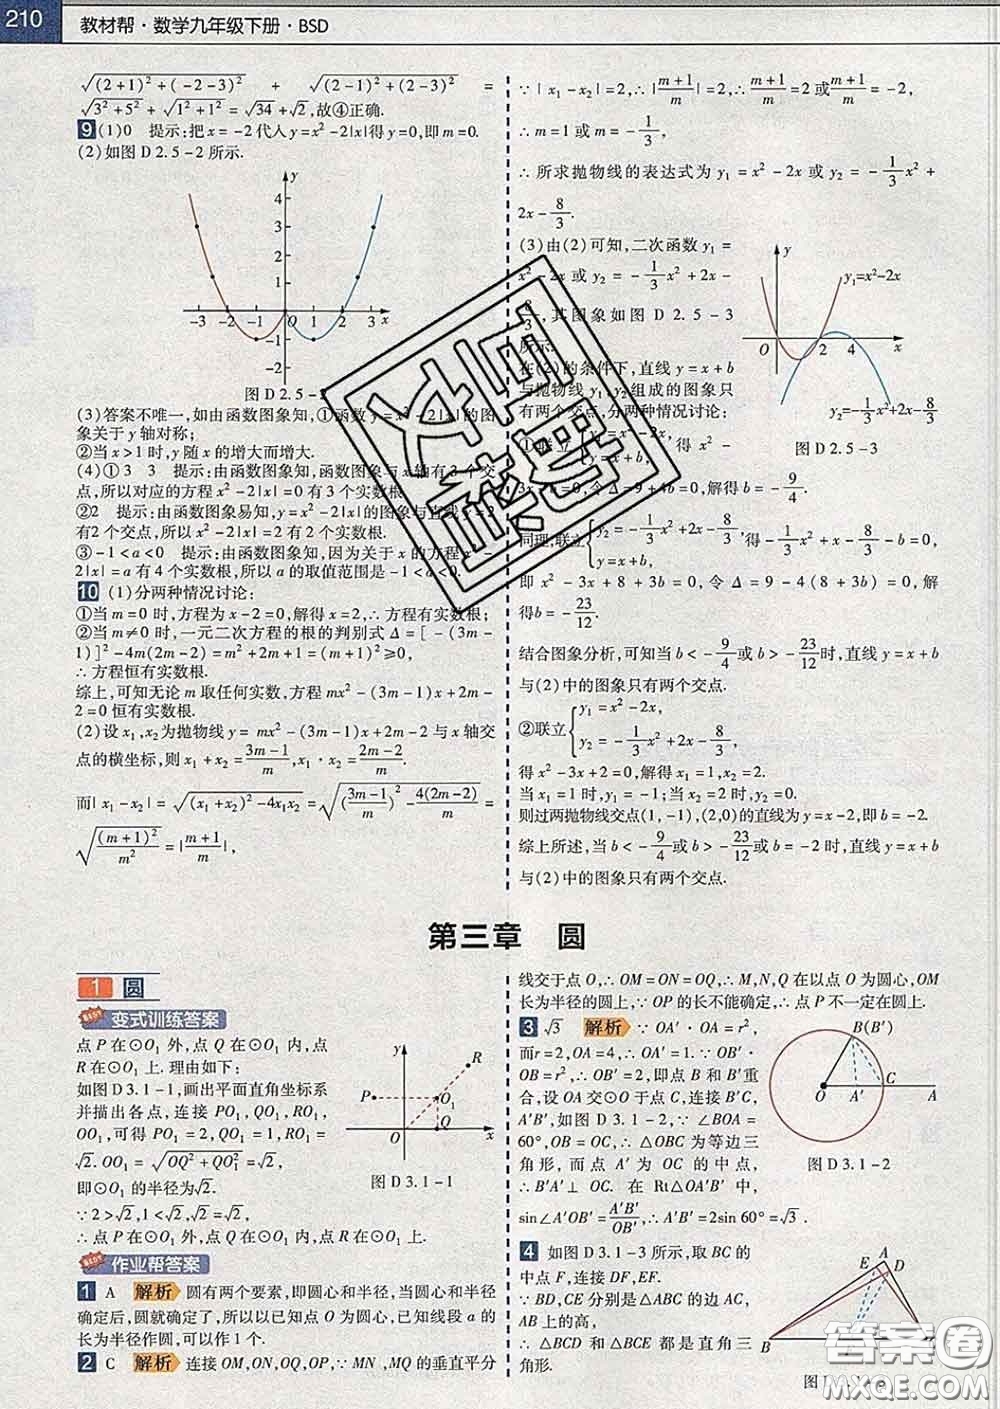 210 教材帮·数学九年级下册·BSD
√((2+1)²+(-2-3)²) + √((2-1)²+(2-3)²) =
√(3²+5²)+√(1²+1²)=√34+√2,故④正确.
9 (1)0 提示:把x=-2代入y=x²-2|x|得y=0,即m=0.
(2)如图D2.5-2所示.
y
4
3
2
1
-3 -2 -1 O 1 2 3 x
-1
-2
图D2.5-
(3)答案不唯一,如由函数图象知,①函数y=x²-2|x|的图
象关于y轴对称;
②当x>1时,y随x的增大而增大.
(4)①3 3 提示:由函数图象知,函数图象与x轴有3个交
点,所以对应的方程x²-2|x|=0有3个实数根.
②2 提示:由函数图象易知,y=x²-2|x|的图象与直线y=2
有2个交点,所以x²-2|x|=2有2个实数根.
③-1<a<0 提示:由函数图象知,因为关于x的方程x²-
2|x|=a有4个实数根,所以a的取值范围是-1<a<0.
10 (1)分两种情况讨论:
①当m=0时,方程为x-2=0,解得x=2,∴方程有实数根;
②当m≠0时,一元二次方程的根的判别式Δ=[-(3m-
1)]²-4m(2m-2)=m²+2m+1=(m+1)²≥0,
∴方程恒有实数根.
综上,可知无论m取任何实数,方程mx²-(3m-1)x+2m-
2=0恒有实数根.
(2)设x₁,x₂为抛物线y=mx²-(3m-1)x+2m-2与x轴交
点的横坐标,则x₁+x₂=(3m-1)/m,x₁·x₂=(2m-2)/m.
而|x₁-x₂|=√((x₁+x₂)²-4x₁x₂)=√(((3m-1)/m)²-4(2m-2)/m)=
√((m+1)²/m²)=|(m+1)/m|,
∵|x₁-x₂|=2,∴|(m+1)/m|=2,∴(m+1)/m=2或(m+1)/m=-2,
∴m=1或m=-1/3.
∴所求抛物线的表达式为y₁=x²-2x或y₂=-1/3x²+
2x-8/3.
(3)由(2)可知,二次函数y₁=
x²-2x或y₂=-1/3x²+2x-
8/3,其图象如图D2.5-3
所示.
在(2)的条件下,直线y=x+b
与抛物线y₁,y₂组成的图象只
有两个交点,分两种情况讨论:
y
y₁=x²-2x
O 2 4 x
y₂=-1/3x²+2x-8/3
图D2.5-3
①联立{y₁=x²-2x, 得x²-
3x-b=0,令Δ=9+4b=0,解得b=-9/4.
同理,联立{y₂=-1/3x²+2x-8/3, y=x+b 得-1/3x²+x-8/3-b=0,
即x²-3x+8+3b=0,令Δ=9-4(8+3b)=0,解
得b=-23/12.
结合图象分析,可知当b<-9/4或b>-23/12时,直线y=x+b
与(2)中的图象只有两个交点.
②联立{y₁=x²-2x, y₂=-1/3x²+2x-8/3,
得x²-3x+2=0,解得x₁=1,x₂=2.
当x₁=1时,y₁=-1;当x₂=2时,y₂=0.
则过两抛物线交点(1,-1),(2,0)的直线为y=x-2,即b=-2.
综上所述,当b<-9/4或b>-23/12或b=-2时,直线y=x+b
与(2)中的图象只有两个交点.
第三章 圆
1 圆
变式训练答案
点P在⊙O₁外,点Q在⊙O₁内,点
R在⊙O₁上.理由如下:
如图D3.1-1,画出平面直角坐标系
并描出各点,连接PO₁,QO₁,RO₁,
OO₁,可得PO₁=2,QO₁=1,RO₁=
√2.OO₁=√(OQ²+QO₁²)=√2,
即⊙O₁的半径为√2.
∵2>√2,1<√2,√2=√2,
∴点P在⊙O₁外,点Q在⊙O₁内,点R在⊙O₁上.
y
R
P
O₁
O Q x
图D3.1-1
作业帮答案
1 A 解析 圆有两个要素,即圆心和半径,当圆心和半径
确定后,圆就确定了,所以以已知点O为圆心,已知线段a的
长为半径作圆,可以作1个.
2 C 解析 连接OM,ON,OQ,OP,∵MN,MQ的垂直平分
线交于点O,∴OM=ON=OQ,∴M,N,Q在以点O为圆心,OM
长为半径的圆上,∵OP的长不能确定,∴点P不一定在圆上.
3 √3 解析 ∵OA′·OA=r²,
而r=2,OA=4,∴OA′=1.∵OB′·
OB=r²,∴OB′=2,即点B和B′重
合,设OA交⊙O于点C,连接B′C,
A′B′,如图D3.1-2,∵∠BOA=
60°,OB=OC,∴△OBC为等边三
角形,而点A′为OC的中点,
∴B′A′⊥OC.在Rt△OA′B′中,
sin∠A′OB′=A′B′/OB′,∴A′B′=2sin60°=√3.
B(B′)
O A′ C A
图D3.1-2
4 如图D3.1-3所示,取BC的
中点F,连接DF,EF.
∵BD,CE分别是△ABC的边AC,
AB上的高,
∴△BCD和△BCE都是直角三
角形.
A
E D
B
图D
答案圈
MXQE.COM